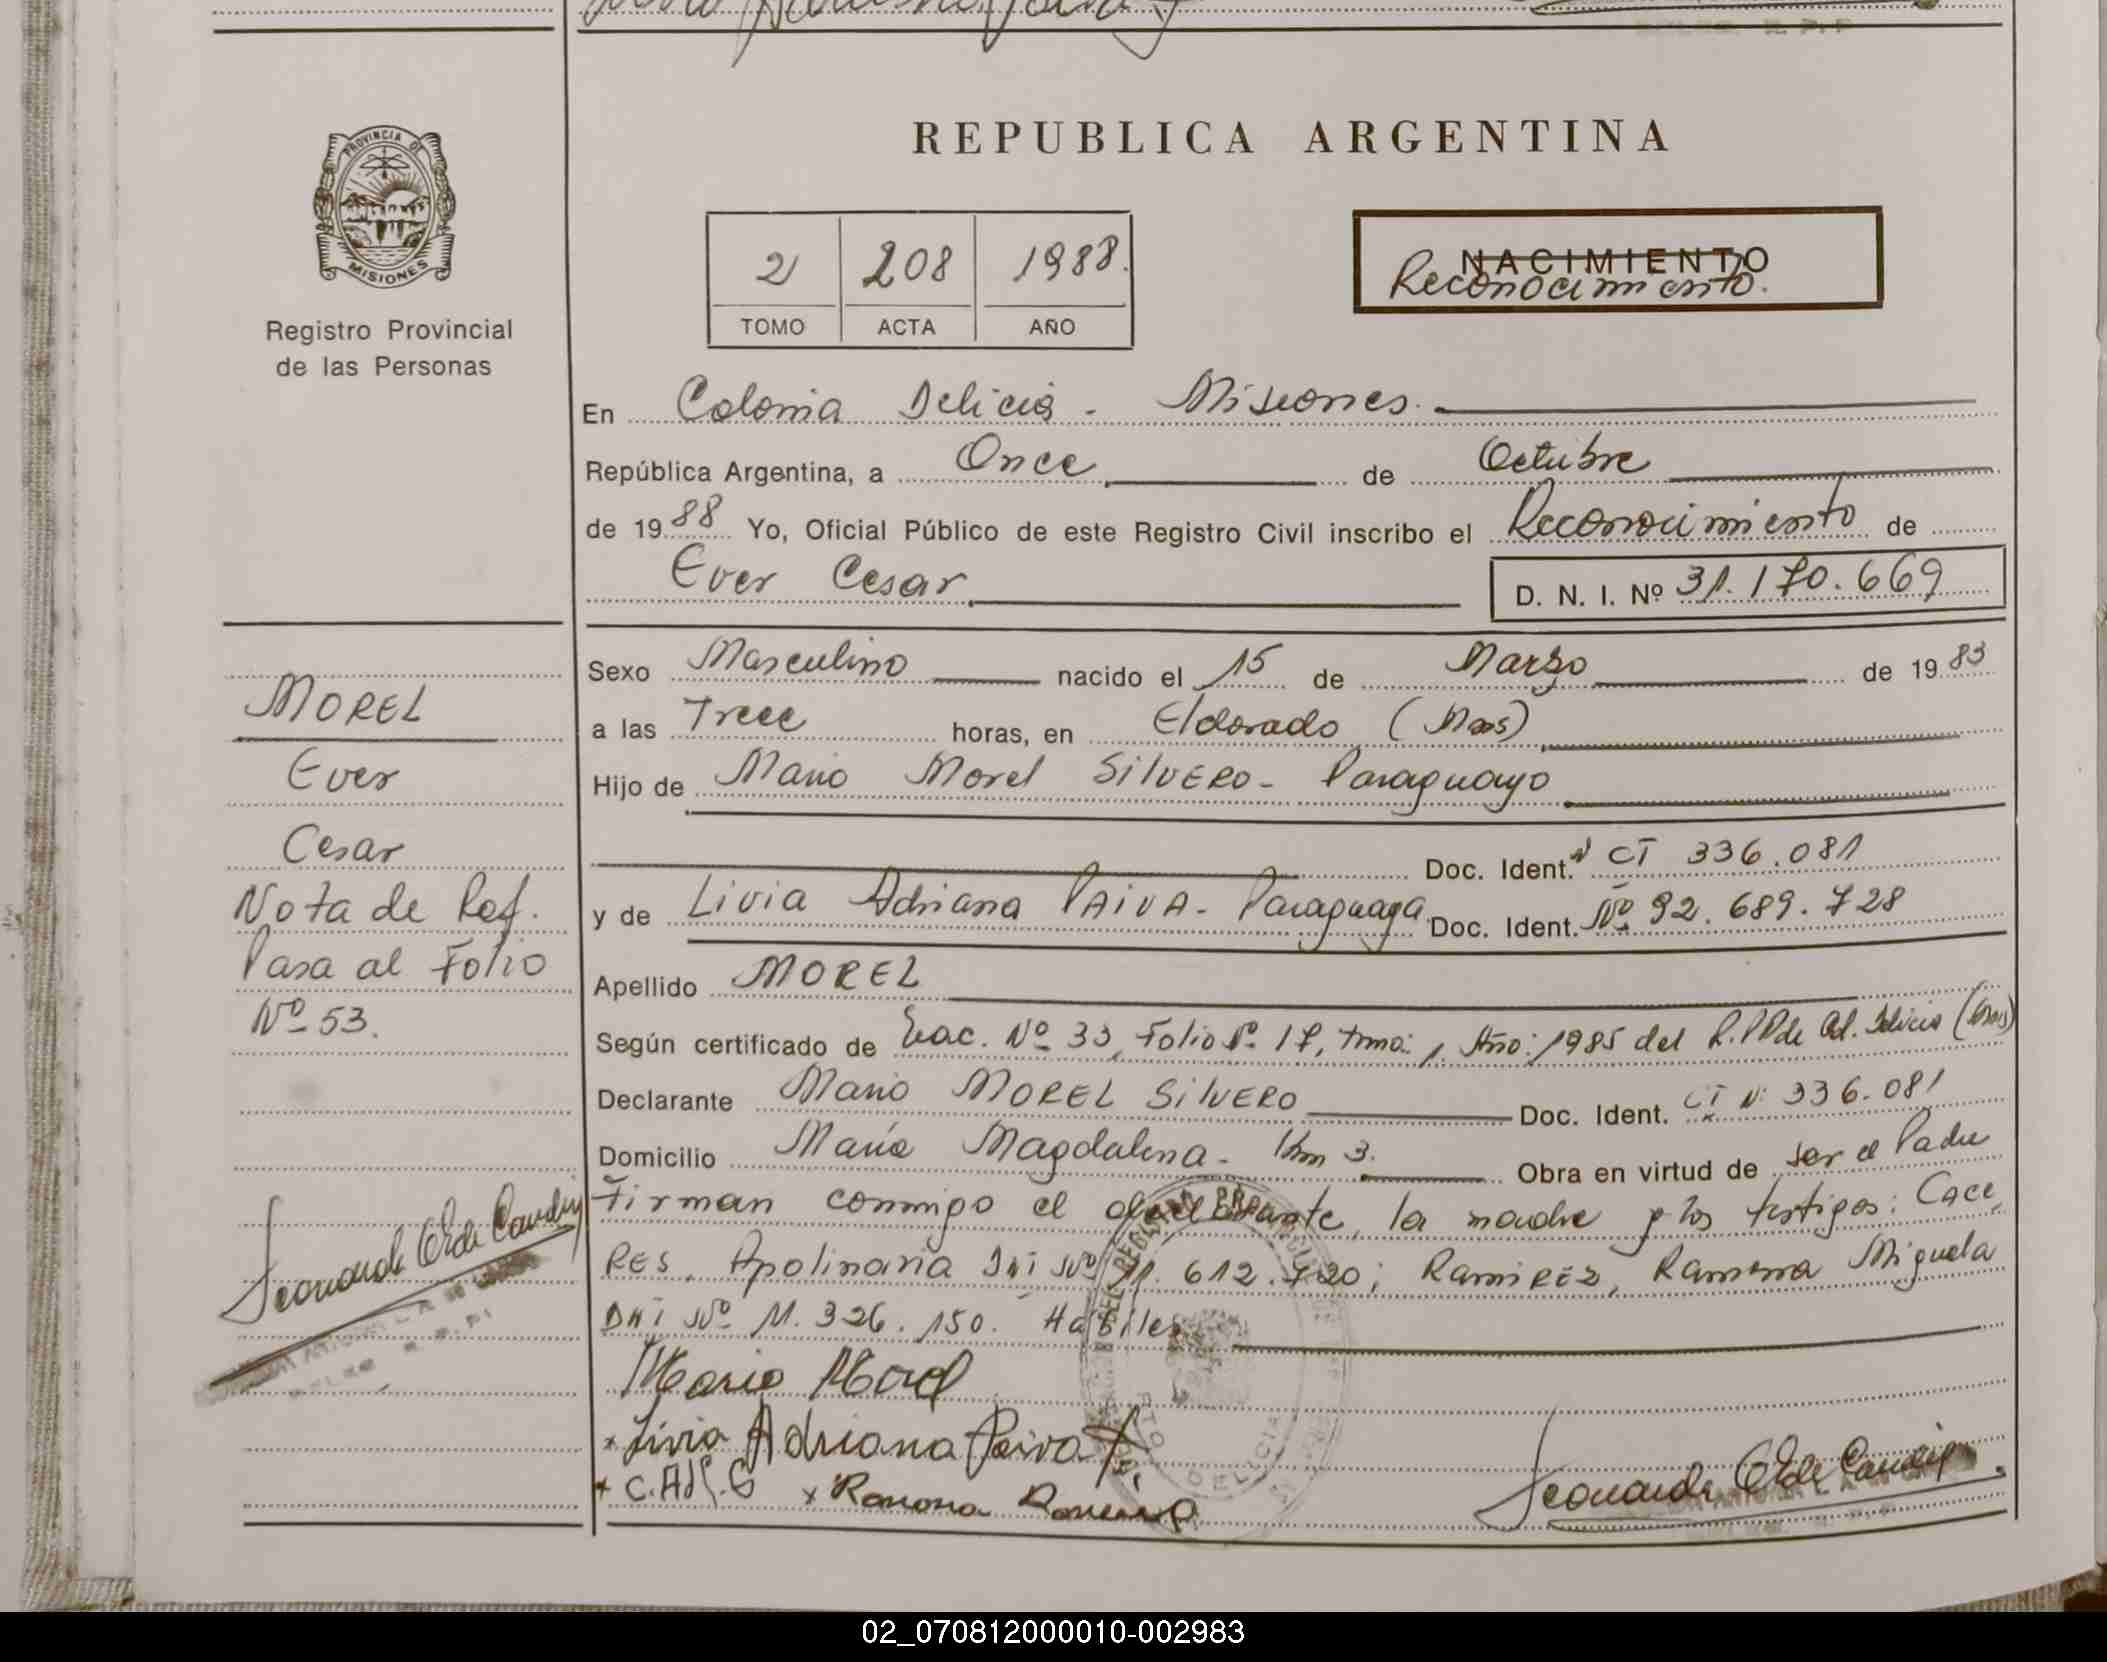 REPUBLICA ARGENTINA
PROVINCIA DE
MISIONES
Registro Provincial
de las Personas
2 208 1988.
TOMO ACTA AÑO
NACIMIENTO
Reconocimiento.
En Colonia Delicia - Misiones.
República Argentina, a Once de Octubre
de 1988 Yo, Oficial Público de este Registro Civil inscribo el Reconocimiento de
Ever Cesar D. N. I. Nº 31.170.669
Sexo Masculino nacido el 15 de Marzo de 1983
a las Trece horas, en Eldorado (Mnes)
Hijo de Mario Morel SilVERO - Paraguayo
Doc. Ident. Nº CI 336.081
y de Livia Adriana PAIVA - Paraguaya. Doc. Ident. Nº 92.689.728
Apellido MOREL
Según certificado de Nac. Nº 33, Folio Nº 17, tomo: 1, Año: 1985 del R.P.P de Col. Delicia (Mnes)
Declarante Mario MOREL SilVERO Doc. Ident. CI Nº 336.081
Domicilio María Magdalena - Km 3. Obra en virtud de ser el Padre
Firman conmigo el declarante, la madre y los testigos: CACE,
RES, Apolinaria DNI Nº 11.612.720; RAMIREZ, Ramona Miguela
DNI Nº 11.326.150. Habiles
Mario Morel
x Livia Adriana Paiva
x C.Ad.G x Ramona Ramirez
MOREL
Ever
Cesar
Nota de Ref.
Pasa al Folio
Nº 53.
DELICIA
02_070812000010-002983